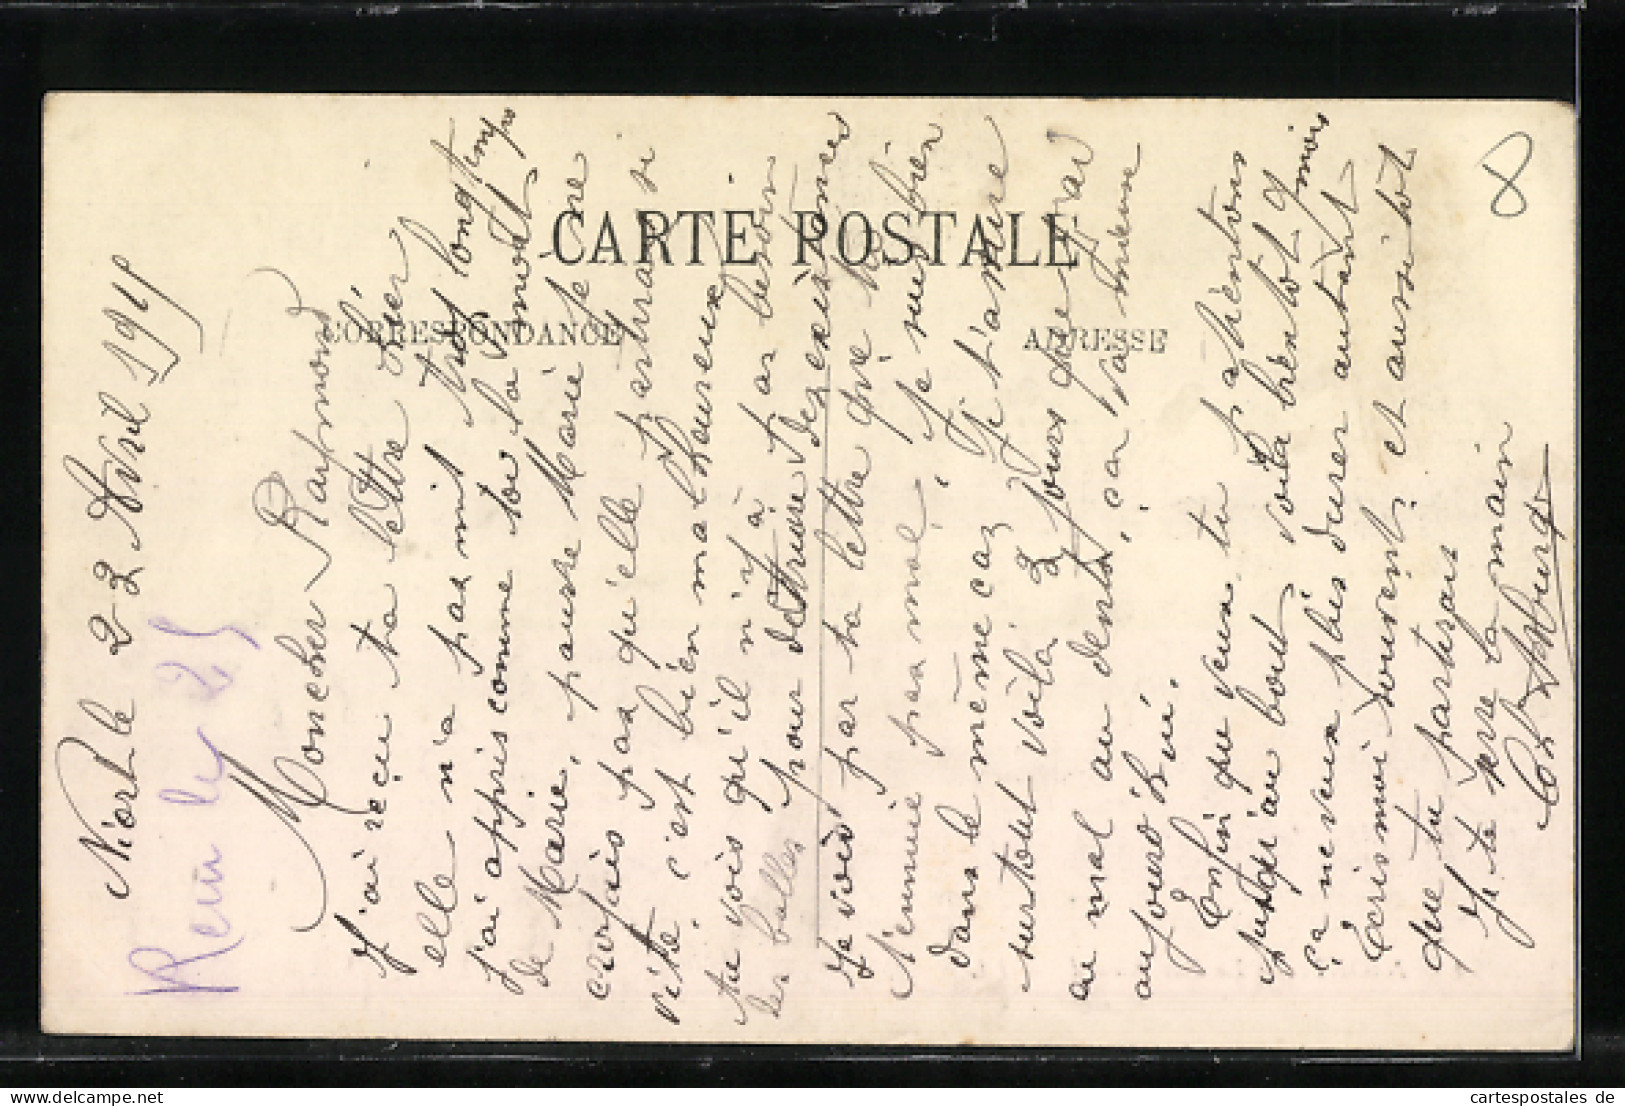 CARTE POSTALE
CORRESPONDANCE
ADRESSE
8
Niort le 23 Avril 1915
Recu le 25
Moncher Raymond
J'ai reçu ta lettre hier
elle n'a pas mit trop longtemps
j'ai appris comme toi la mort
de Marie, pauvre Marie je ne
croyais pas qu'elle partirai si
vite. c'est bien malheureux
tu vois qu'il n'y à pas besoin
des balles pour détruire des existences
Je vois par ta lettre que tu
t'ennuie pas mal, je suis bien
dans le même cas, je t'assure
surtout voilà 2 jours que j'ai
au mal au dents, ça va mieux
aujourd'hui.
Enfin que veux tu patientons
jusqu'au bout voila bientot 9 mois
ça ne veux plus durer autant
Ecris moi souvent, et aussitôt
que tu partirais
Je te serre la main